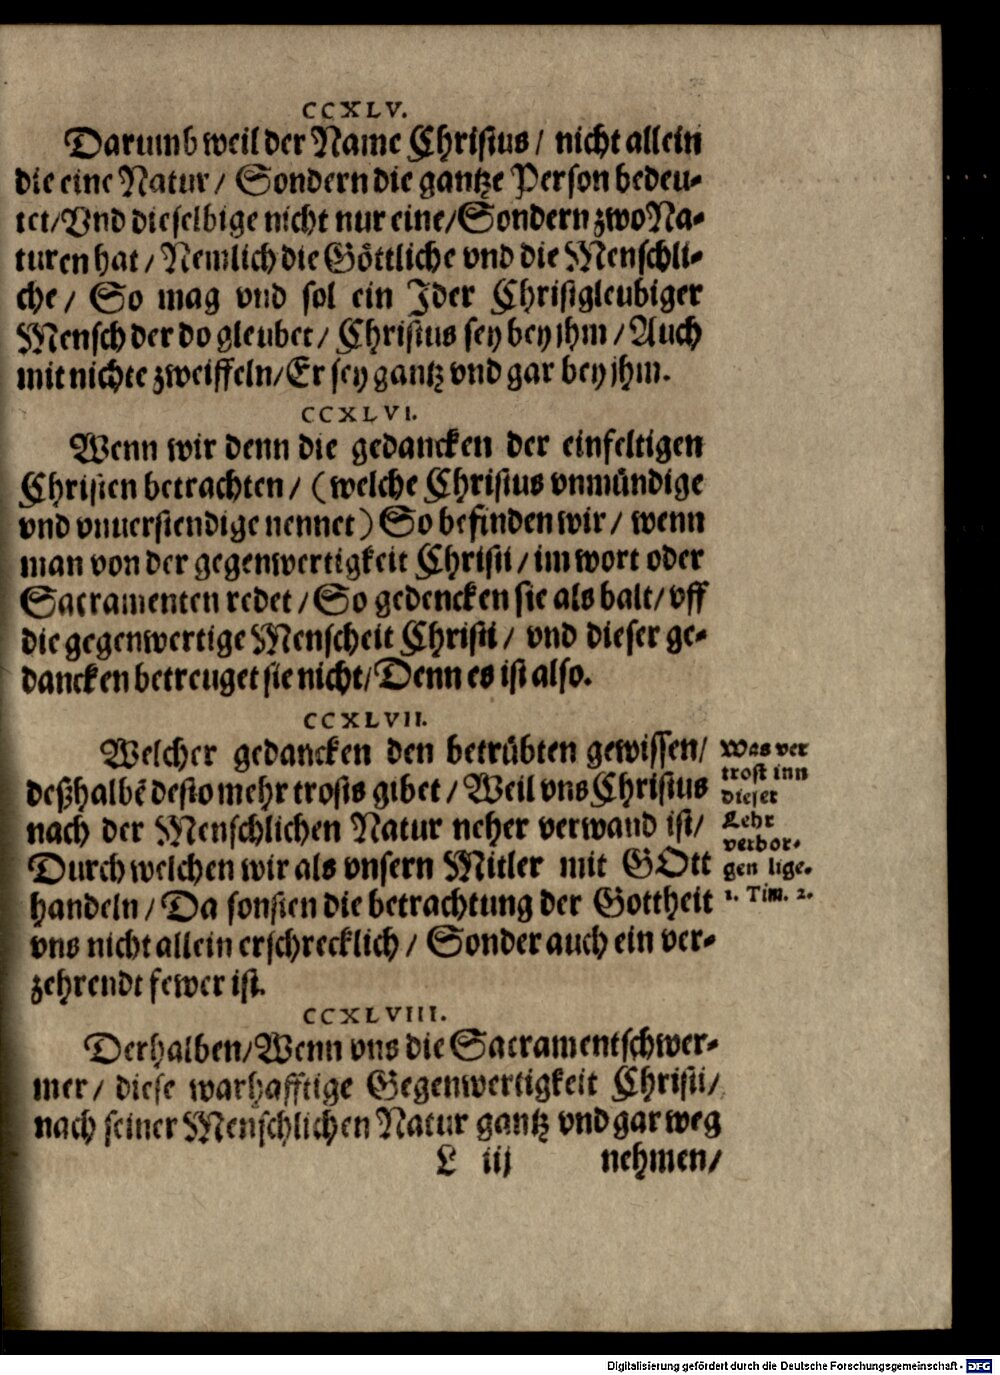 CCXLV.
Darumb weil der Name Christus / nicht allein
die eine Natur / Sondern die gantze Person bedeu-
tet / Vnd dieselbige nicht nur eine / Sondern zwo Na-
turen hat / Nemlich die Göttliche vnd die Menschli-
che / So mag vnd sol ein Jder Christgleubiger
Mensch der do gleubet / Christus sey bey jhm / Auch
mit nichte zweiffeln / Er sey gantz vnd gar bey jhm.
CCXLVI.
Wenn wir denn die gedancken der einfeltigen
Christen betrachten / (welche Christus vnmündige
vnd vnuerstendige nennet) So befinden wir / wenn
man von der gegenwertigkeit Christi / im wort oder
Sacramenten redet / So gedencken sie als balt / vff
die gegenwertige Menscheit Christi / vnd dieser ge-
dancken betreuget sie nicht / Denn es ist also.
CCXLVII.
Welcher gedancken den betrübten gewissen /
deßhalbē desto mehr trosts gibet / Weil vns Christus
nach der Menschlichen Natur neher verwand ist /
Durch welchen wir als vnsern Mitler mit GOtt
handeln / Da sonsten die betrachtung der Gottheit
vns nicht allein erschrecklich / Sonder auch ein ver-
zehrendt fewer ist.
Was ver
trost inn
dieser
Lehr
verbor-
gen lige.
1. Tim. 2.
CCXLVIII.
Derhalben / Wenn vns die Sacramentschwer-
mer / diese warhafftige Gegenwertigkeit Christi /
nach seiner Menschlichen Natur gantz vnd gar weg
L iij nehmen /
Digitalisierung gefördert durch die Deutsche Forschungsgemeinschaft - DFG